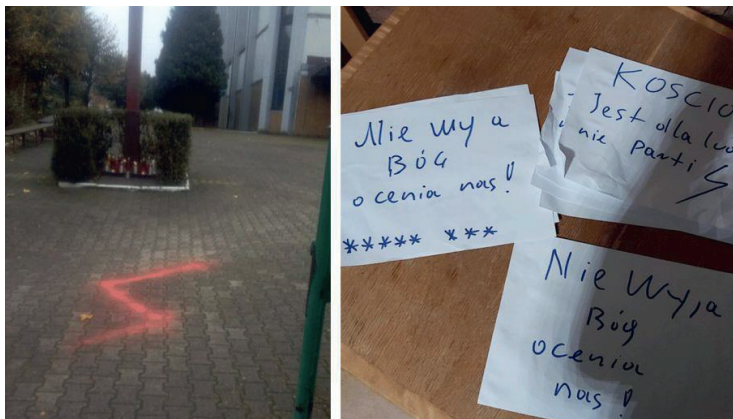 Nie wy a
BÓG
ocenia nas!
***** ***
KOSCIO
Jest dla lu
nie Parti
Nie Wy,a
Bóg
ocenia
nas!